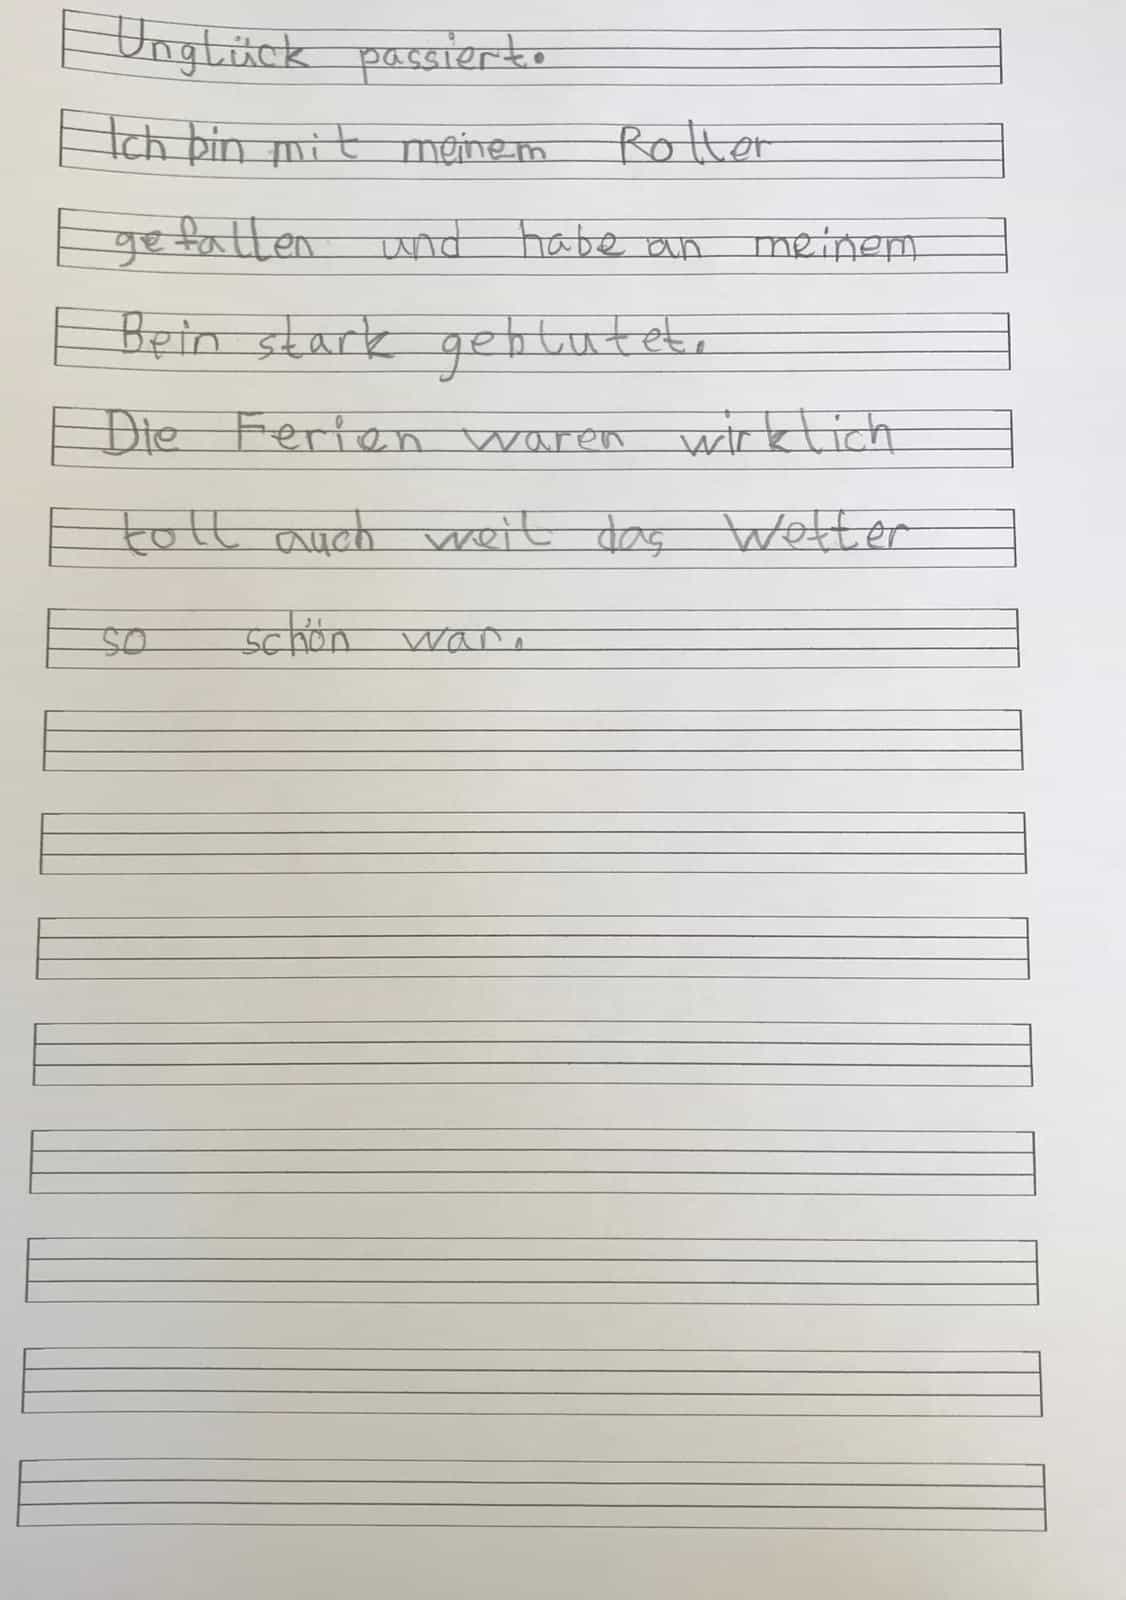 Unglück passiert.
Ich bin mit meinem Roller
gefallen und habe an meinem
Bein stark geblutet.
Die Ferien waren wirklich
toll auch weil das Wetter
so schön war.